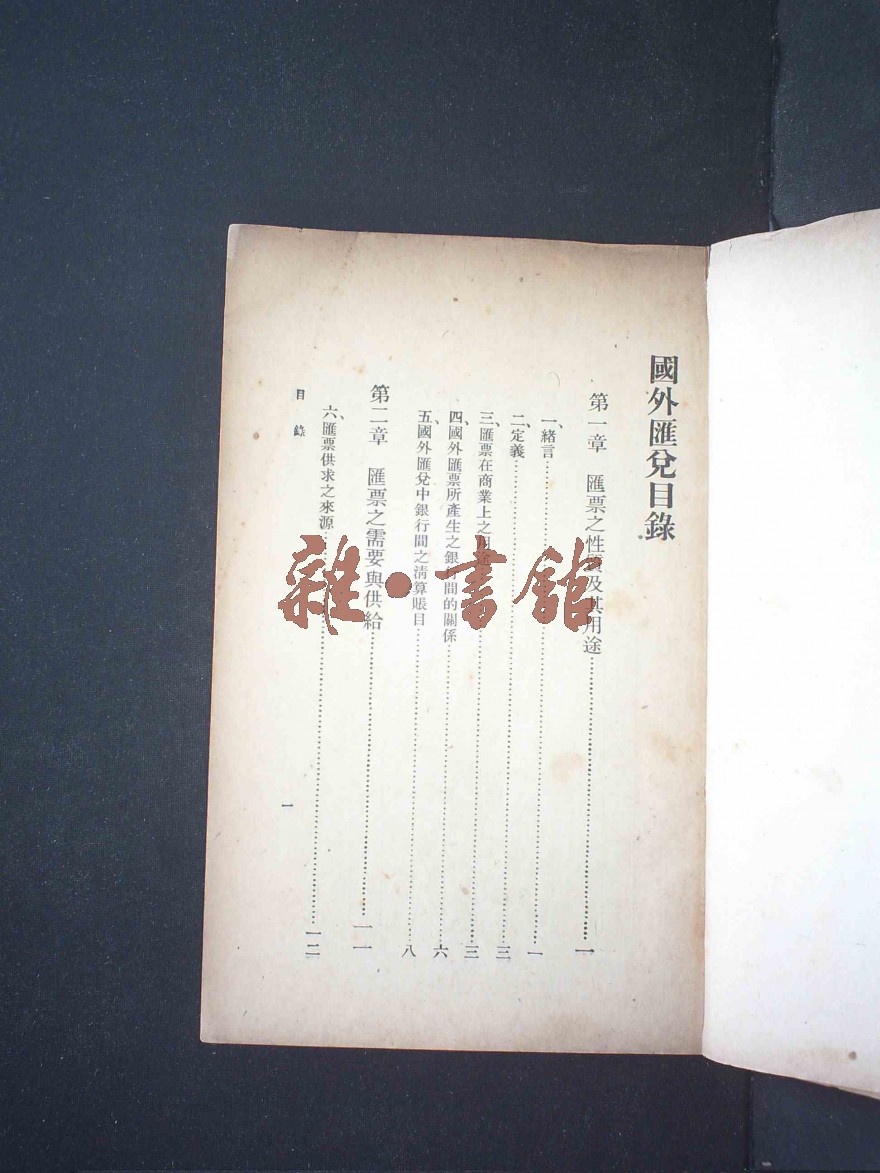 國外匯兌目錄
第一章　匯票之性質及其用途……一
一、緒言……一
二、定義……三
三、匯票在商業上之用途……三
四、國外匯票所產生之銀行間的關係……六
五、國外匯兌中銀行間之清算賬目……八
第二章　匯票之需要與供給……一一
六、匯票供求之來源……一二
目錄
一
雜·書館